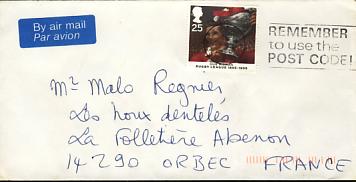 By air mail
Par avion
25
RUGBY LEAGUE 1895-1995
REMEMBER
to use the
POST CODE!
Mr Malo Regnier
Les houx dentelés
La Folletière Abenon
14290 ORBEC FRANCE